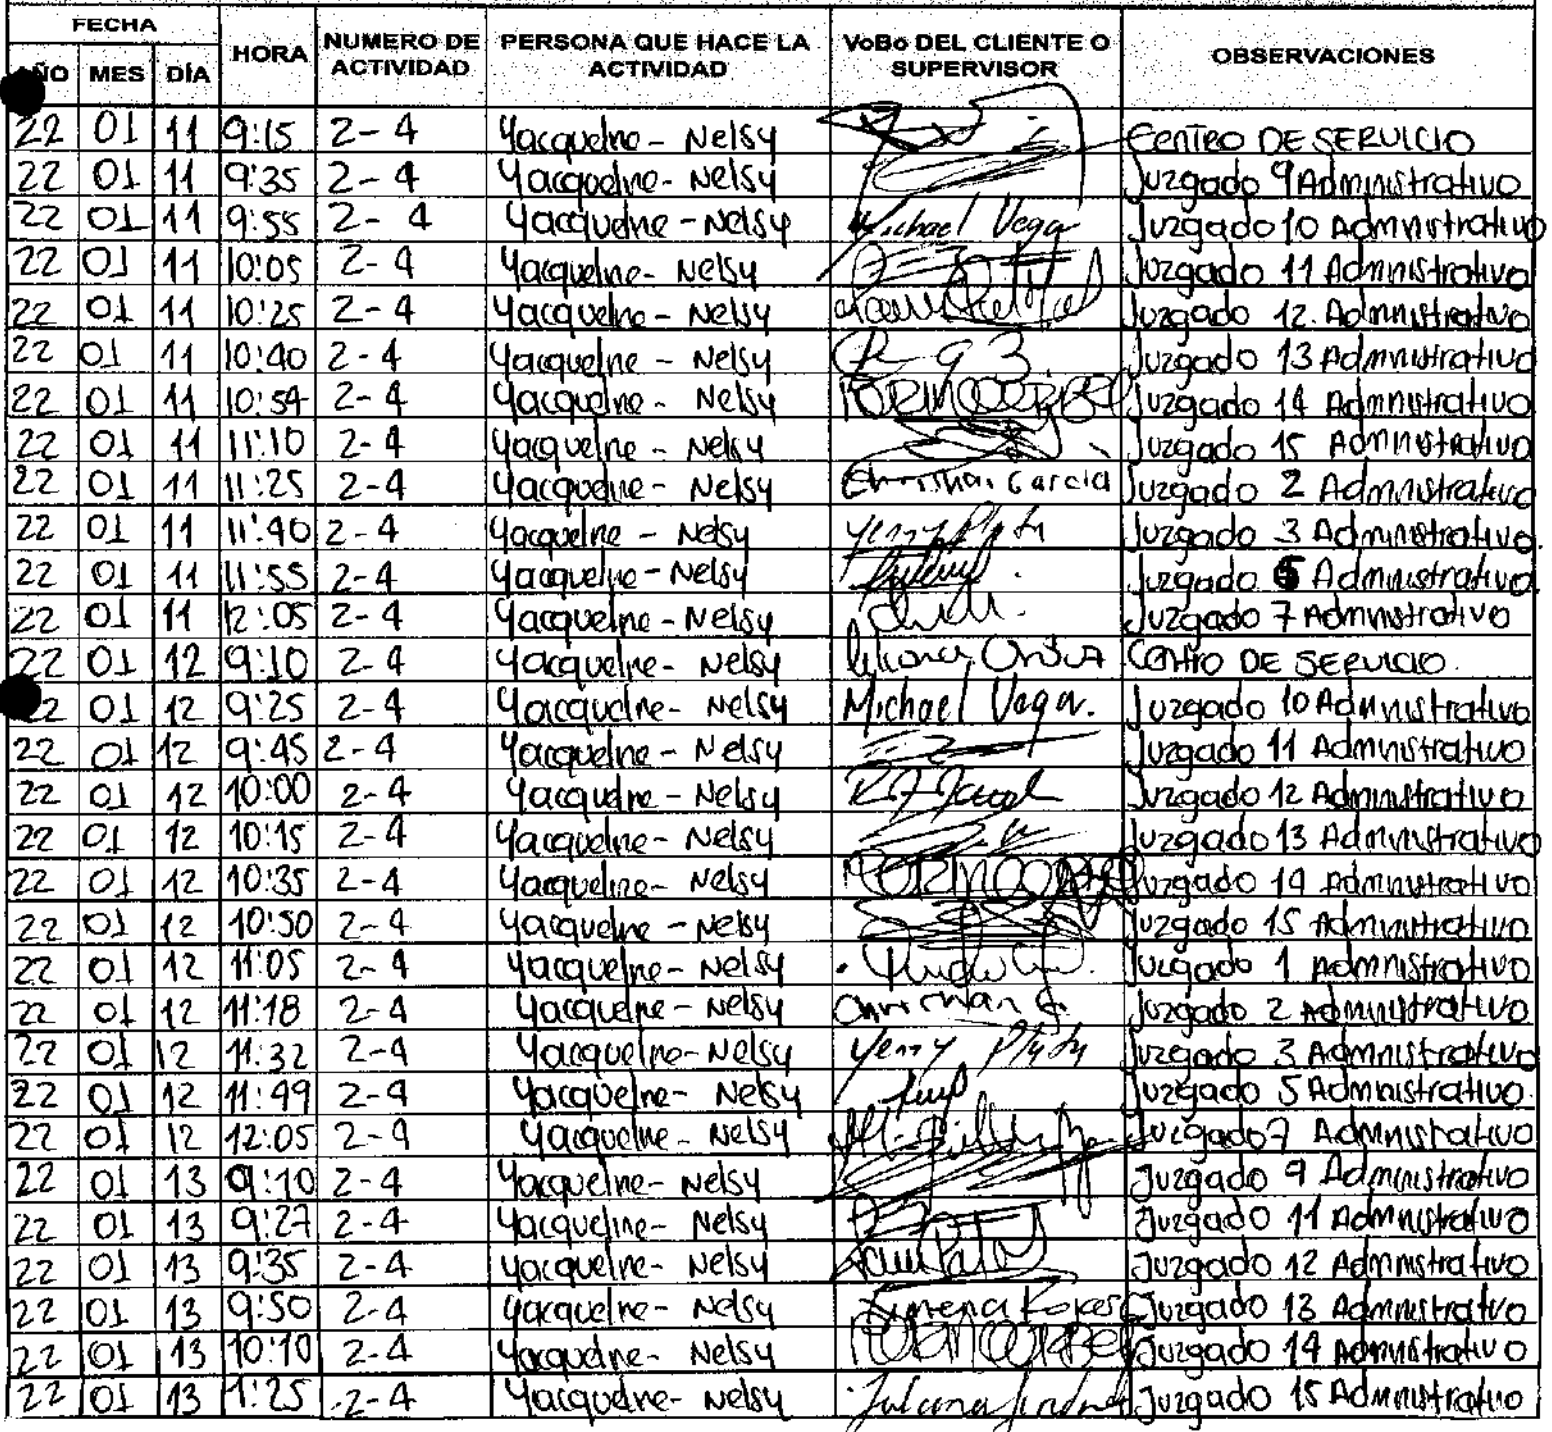 FECHA
AÑO MES DÍA HORA NUMERO DE ACTIVIDAD PERSONA QUE HACE LA ACTIVIDAD VoBo DEL CLIENTE O SUPERVISOR OBSERVACIONES
22 01 11 9:15 2-4 Yacqueline - Nelsy CENTRO DE SERVICIO
22 01 11 9:35 2-4 Yacqueline - Nelsy Juzgado 9 Administrativo
22 01 11 9:55 2-4 Yacqueline - Nelsy Michael Vega Juzgado 10 Administrativo
22 01 11 10:05 2-4 Yacqueline - Nelsy Juzgado 11 Administrativo
22 01 11 10:25 2-4 Yacqueline - Nelsy Juzgado 12. Administrativo
22 01 11 10:40 2-4 Yacqueline - Nelsy Juzgado 13 Administrativo
22 01 11 10:54 2-4 Yacqueline - Nelsy Juzgado 14 Administrativo
22 01 11 11:10 2-4 Yacqueline - Nelsy Juzgado 15 Administrativo
22 01 11 11:25 2-4 Yacqueline - Nelsy Christhian Garcia Juzgado 2 Administrativo
22 01 11 11:40 2-4 Yacqueline - Nelsy Juzgado 3 Administrativo.
22 01 11 11:55 2-4 Yacqueline - Nelsy Juzgado 5 Administrativo
22 01 11 12:05 2-4 Yacqueline - Nelsy Juzgado 7 Administrativo
22 01 12 9:10 2-4 Yacqueline - Nelsy CENTRO DE SERVICIO.
22 01 12 9:25 2-4 Yacqueline - Nelsy Michael Vega. Juzgado 10 Administrativo
22 01 12 9:45 2-4 Yacqueline - Nelsy Juzgado 11 Administrativo
22 01 12 10:00 2-4 Yacqueline - Nelsy Juzgado 12 Administrativo
22 01 12 10:15 2-4 Yacqueline - Nelsy Juzgado 13 Administrativo
22 01 12 10:35 2-4 Yacqueline - Nelsy Juzgado 14 Administrativo
22 01 12 10:50 2-4 Yacqueline - Nelsy Juzgado 15 Administrativo
22 01 12 11:05 2-4 Yacqueline - Nelsy Juzgado 1 Administrativo
22 01 12 11:18 2-4 Yacqueline - Nelsy Christhian G. Juzgado 2 Administrativo
22 01 12 11:32 2-4 Yacqueline - Nelsy Juzgado 3 Administrativo
22 01 12 11:49 2-4 Yacqueline - Nelsy Juzgado 5 Administrativo.
22 01 12 12:05 2-4 Yacqueline - Nelsy Juzgado 7 Administrativo
22 01 13 9:10 2-4 Yacqueline - Nelsy Juzgado 9 Administrativo
22 01 13 9:27 2-4 Yacqueline - Nelsy Juzgado 11 Administrativo
22 01 13 9:35 2-4 Yacqueline - Nelsy Juzgado 12 Administrativo
22 01 13 9:50 2-4 Yacqueline - Nelsy Ximena Juzgado 13 Administrativo
22 01 13 10:10 2-4 Yacqueline - Nelsy Juzgado 14 Administrativo
22 01 13 1:25 2-4 Yacqueline - Nelsy Juliana Juzgado 15 Administrativo